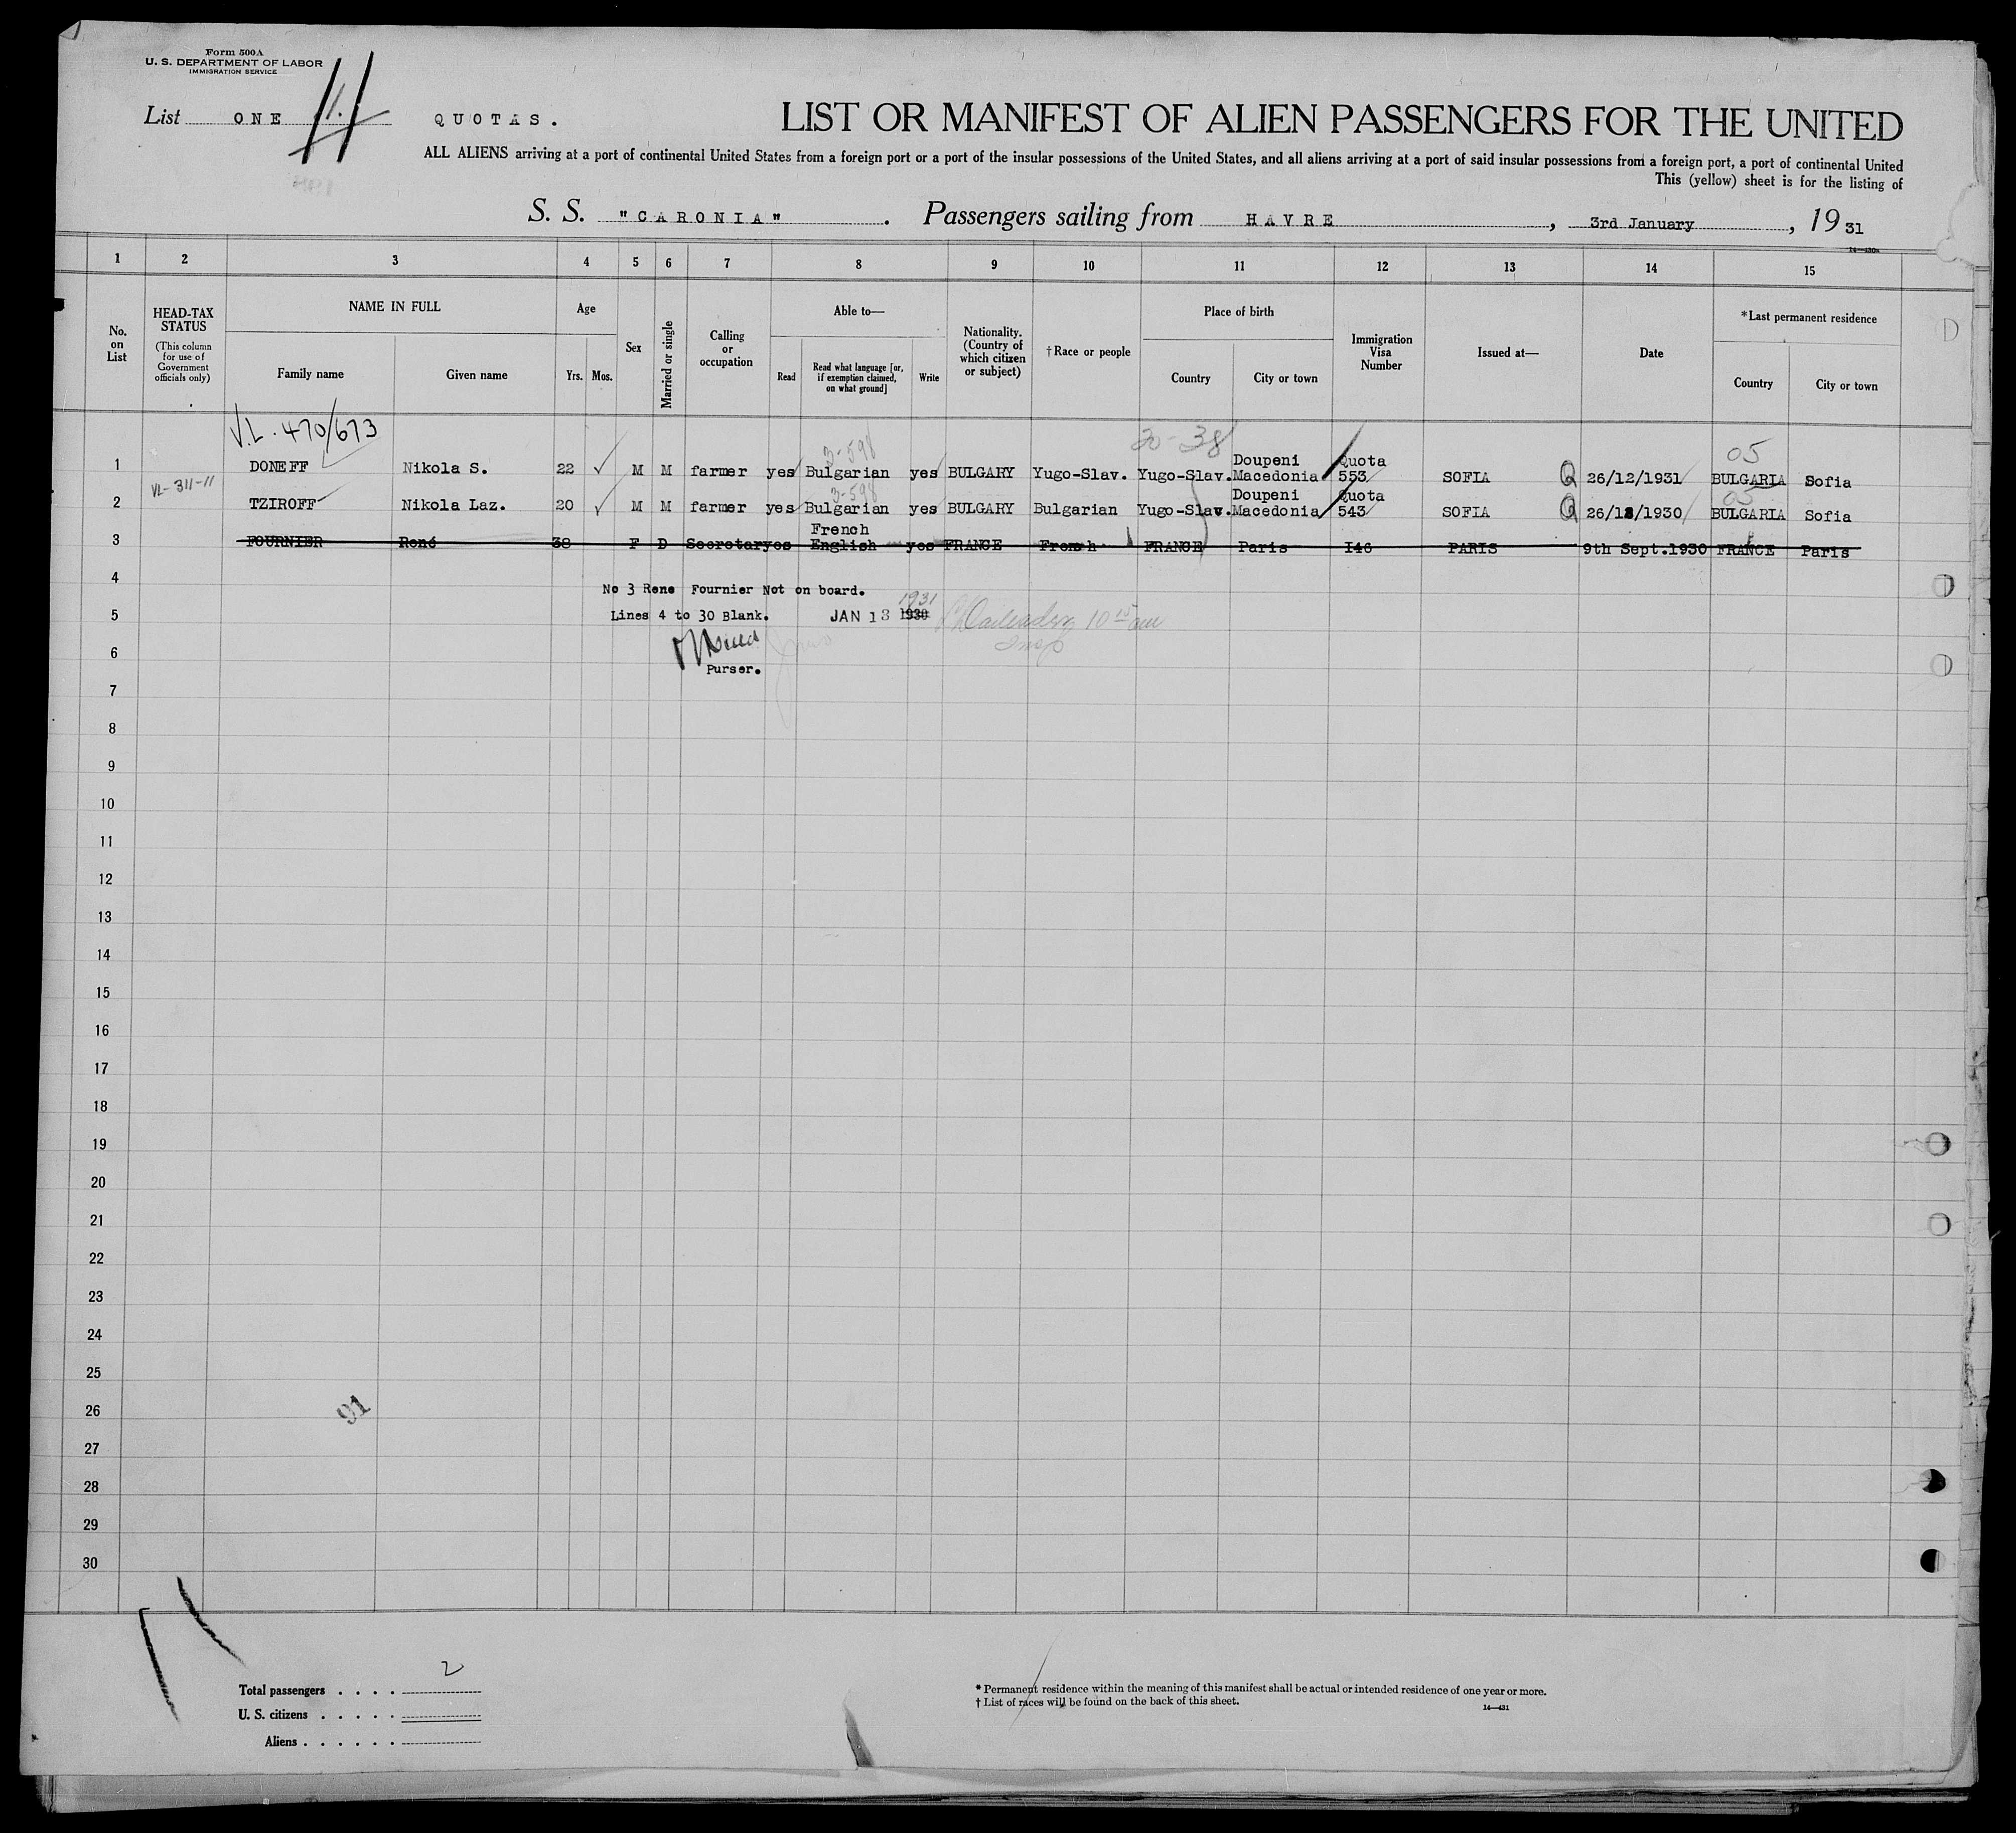 Form 500A
U. S. DEPARTMENT OF LABOR
IMMIGRATION SERVICE
List ONE 11 QUOTAS.
LIST OR MANIFEST OF ALIEN PASSENGERS FOR THE UNITED
ALL ALIENS arriving at a port of continental United States from a foreign port or a port of the insular possessions of the United States, and all aliens arriving at a port of said insular possessions from a foreign port, a port of continental United
This (yellow) sheet is for the listing of
S. S. "CARONIA". Passengers sailing from HAVRE, 3rd January, 19 31
14—430a
1 2 3 4 5 6 7 8 9 10 11 12 13 14 15
No. on List
HEAD-TAX STATUS
(This column for use of Government officials only)
NAME IN FULL
Family name Given name
Age
Yrs. Mos.
Sex
Married or single
Calling or occupation
Able to—
Read
Read what language [or, if exemption claimed, on what ground]
Write
Nationality. (Country of which citizen or subject)
†Race or people
Place of birth
Country City or town
Immigration Visa Number
Issued at—
Date
*Last permanent residence
Country City or town
V.L. 470/673 3-598 20-38 05
1 DONEFF Nikola S. 22 M M farmer yes Bulgarian yes BULGARY Yugo-Slav. Yugo-Slav. Doupeni Macedonia Quota 553 SOFIA Q 26/12/1931 BULGARIA Sofia
VL-311-11 3-598 05
2 TZIROFF Nikola Laz. 20 M M farmer yes Bulgarian yes BULGARY Bulgarian Yugo-Slav. Doupeni Macedonia Quota 543 SOFIA Q 26/12/1930 BULGARIA Sofia
3 FOURNIER René 38 F D Secretar yes French English yes FRANCE French FRANCE Paris I46 PARIS 9th Sept.1930 FRANCE Paris
4 No 3 Rene Fournier Not on board.
1931
5 Lines 4 to 30 Blank. JAN 13 1930 10 15 am
6 Purser.
7
8
9
10
11
12
13
14
15
16
17
18
19
20
21
22
23
24
25
26 91
27
28
29
30
Total passengers . . . . 2
U. S. citizens . . . . .
Aliens . . . . . .
* Permanent residence within the meaning of this manifest shall be actual or intended residence of one year or more.
† List of races will be found on the back of this sheet.
14—431